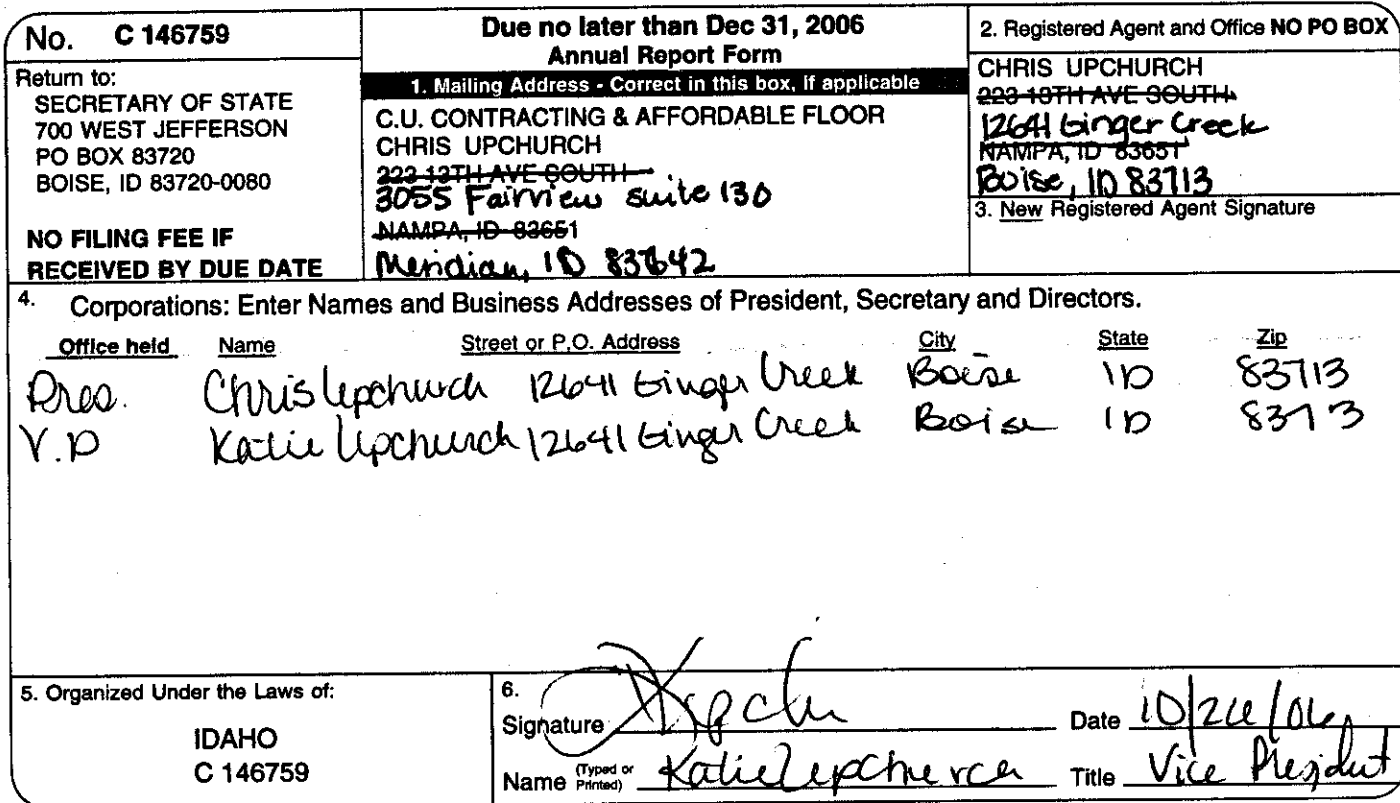 No. C 146759
Return to:
SECRETARY OF STATE
700 WEST JEFFERSON
PO BOX 83720
BOISE, ID 83720-0080
NO FILING FEE IF
RECEIVED BY DUE DATE
Due no later than Dec 31, 2006
Annual Report Form
1. Mailing Address - Correct in this box, if applicable
C.U. CONTRACTING & AFFORDABLE FLOOR
CHRIS UPCHURCH
223 13TH AVE SOUTH
3055 Fairview suite 130
NAMPA, ID 83651
Meridian, ID 83642
2. Registered Agent and Office NO PO BOX
CHRIS UPCHURCH
223 13TH AVE SOUTH
12641 Ginger Creek
NAMPA, ID 83651
Boise, ID 83713
3. New Registered Agent Signature
4. Corporations: Enter Names and Business Addresses of President, Secretary and Directors.
Office held Name Street or P.O. Address City State Zip
Pres. Chris Upchurch 12641 Ginger Creek Boise ID 83713
V.P Katie Upchurch 12641 Ginger Creek Boise ID 83713
5. Organized Under the Laws of:
IDAHO
C 146759
6.
Signature Date 10/26/06
Name (Typed or Printed) Katie Upchurch Title Vice President